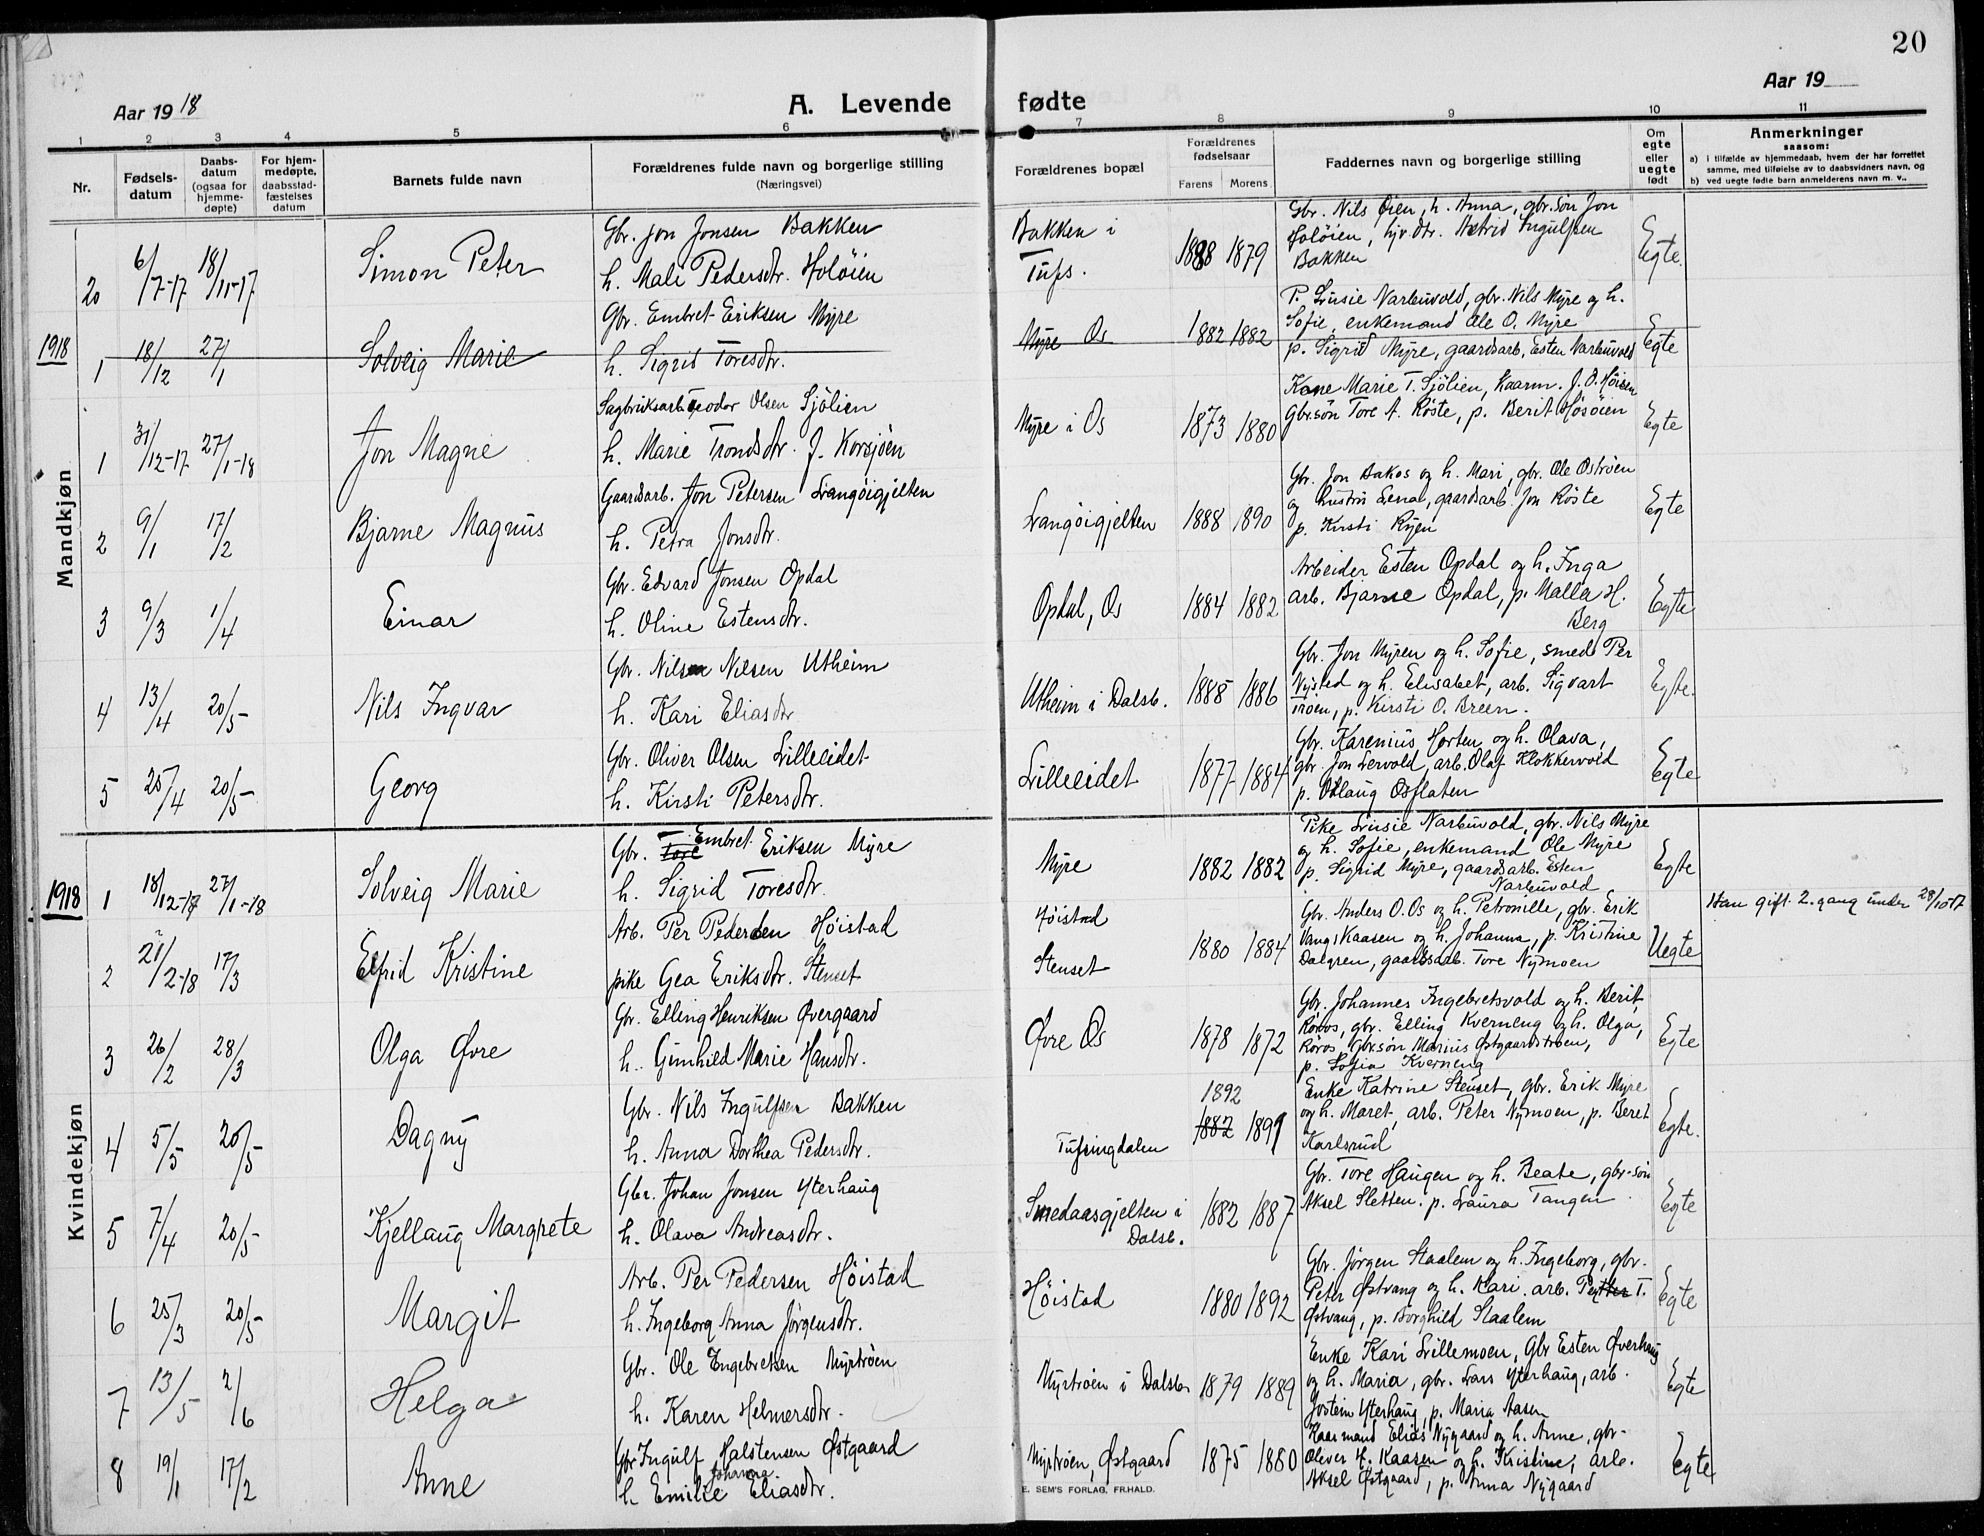 20
Aar 1918
A. Levende fødte
Aar 19
1 2 3 4 5 6 7 8 9 10 11
Nr.
Fødsels-
datum
Daabs-
datum
(ogsaa for
hjemme-
døpte)
For hjem-
medøpte,
daabsstad-
fæstelses
datum
Barnets fulde navn
Forældrenes fulde navn og borgerlige stilling
(Næringsvei)
Forældrenes bopæl
Forældrenes
fødselsaar
Farens Morens
Faddernes navn og borgerlige stilling
Om
egte
eller
uegte
født
Anmerkninger
saasom:
a) i tilfælde av hjemmedaab, hvem der har forrettet
samme, med tilføielse av to daabsvidners navn, og
b) ved uegte fødte barn anmelderens navn m. v..
Mandkjøn
20 6/7-17 18/11-17 Simon Peter
Gbr. Jon Jonsen Bakken
h. Mali Pedersdtr. Holöien
Bakken i
Tufs.
1888 1879
Gbr. Nils Øien, h. Anna, gbr.sön Jon
Holöien, hjv.dtr. Astrid Ingulfsen
Bakken
Egte.
1918
1 18/12 27/1 Solveig Marie
Gbr. Embret Eriksen Myre
h. Sigrid Toresdtr.
Myre Os
1882 1882
P. Lusie Narbuvold, gbr. Nils Myre og h.
Sofie, enkemand Ole O. Myre
p. Sigrid Myre, gaardsarb. Esten Narbuvold
Egte
1 31/12-17 27/1-18 Jon Magne
Sagbruksarb. Teodor Olsen Sjölien
h. Marie Trondsdtr. f. Korsjöen
Myre i Os
1873 1880
Kone Marie T. Sjölien, Kaarm. J. O. Höisen
Gbr.sön Tore A. Röste, p. Berit Hösöien
Egte
2 9/1 17/2 Bjarne Magnus
Gaardsarb. Jon Petersen Langöigjelten
h. Petra Jonsdtr.
Langöigjelten
1888 1890
Gbr. Jon Bakos og h. Mari, gbr. Ole Oströen
og hustru Lena, gaardsarb. Jon Röste
p. Kirsti Ryen
Egte
3 9/3 1/4 Einar
Gbr. Edvard Jonsen Opdal
h. Oline Estensdtr.
Opdal, Os
1884 1882
Arbeider Esten Opdal og h. Inga
arb. Bjarne Opdal, p. Malla H.
Berg
Egte
4 13/4 20/5 Nils Ingvar
Gbr. Nils Nilsen Utheim
h. Kari Eliasdtr
Utheim i Dalsb.
1885 1886
Gbr. Jon Myren og h. Sofie, smed Per
Nysted og h. Elisabet, arb. Sigvart
Tröen, p. Kirsti O. Breen.
Egte.
5 25/4 20/5 Georg
Gbr. Oliver Olsen Lilleeidet
h. Kirsti Petersdtr.
Lilleeidet
1877 1884
Gbr. Karenius Horten og h. Olava,
gbr. Jon Lervold, arb. Olaf Klokkervold
p. Oddlaug Osflaten
Egte
Kvindekjøn
1918
1 18/12-17 27/1-18 Solveig Marie
Gbr. Tore Embret Eriksen Myre
h. Sigrid Toresdtr.
Myre
1882 1882
Pike Lusie Narbuvold, gbr. Nils Myre
og h. Sofie, enkemand Ole Myre
p. Sigrid Myre, gaardsarb. Esten
Narbuvold
Egte
2 21/2-18 17/3 Elfrid Kristine
Arb. Per Pedersen Höistad
pike Gea Eriksdtr. Stenset
Höistad
Stenset
1880 1884
Gbr. Anders O. Os og h. Petronille, gbr. Erik
Vangskaasen og h. Johanna, p. Kristine
Dalgren, gaardsarb. Tore Nymoen
Uegte
Han gift 2. gang under 28/10 17
3 26/2 28/3 Olga Øvre
Gbr. Elling Henriksen Øvergaard
h. Gunhild Marie Hansdtr.
Øvre Os
1878 1872
Gbr. Johannes Ingebretsvold og h. Berit,
Röros, gbr. Elling Kverneng og h. Olga,
Röros, Gbr.sön Marius Østgaardstroen,
p. Sofia Kverneng
Egte
4 5/5 20/5 Dagny
Gbr. Nils Ingulfsen Bakken
h. Anna Dorthea Pedersdtr.
Tufsingdalen
1892
1882 1891
Enke Katrine Stenset, gbr. Erik Myre
og h. Maret, arb. Peter Nymoen, p. Beret
Karlsrud
Egte.
5 7/4 20/5 Kjellaug Margrete
Gbr. Johan Jonsen Yterhaug
h. Olava Andreasdtr.
Smedaasgjelten i
Dalsb.
1882 1887
Gbr. Tore Haugen og h. Beate, gbr-sön
Aksel Sletten. p. Laura Tangen
Egte
6 25/3 20/5 Margit
Arb. Per Pedersen Höistad
h. Ingeborg Anna Jørgensdtr.
Höistad
1880 1892
Gbr. Jørgen Staalem og h. Ingeborg, gbr.
Peter Østvang og h. Kari. arb. Petter T.
Østvang, p. Borghild Staalem
Egte
7 13/5 2/6 Helga
Gbr. Ole Engebretsen Myrtröen
h. Karen Helmersdtr.
Myrtröen i Dalsb.
1879 1889
Enke Kari Lillemoen, Gbr Esten Øverhaug
og h. Maria, gbr. Lars Yterhaug, arb.
Jostein Yterhaug, p. Maria Aasen
Egte
8 19/1 17/2 Anne
Gbr Ingulf Halstensen Østgaard
h. Emilie Johanna Eliasdtr.
Myrtröen, Østgaard
1875 1880
Kaarmand Elias Nygaard og h. Anne, gbr-
Oliver H. Kaasen og h. Kristine, arb.
Aksel Østgaard, p. Anna Nygaard
Egte
E. SEM'S FORLAG, FR.HALD.